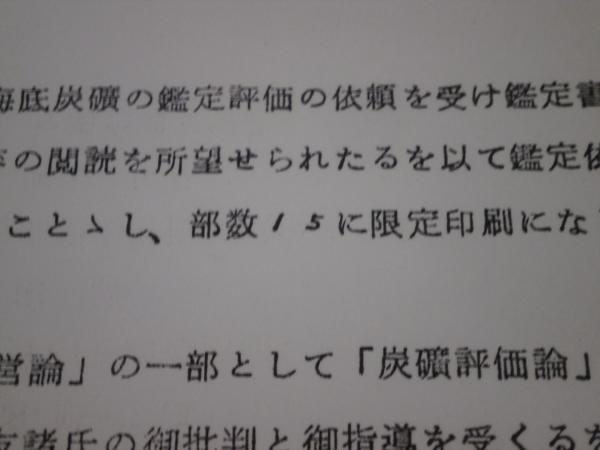 海底炭礦の鑑定評価の依頼を受け鑑定書
の閲読を所望せられたるを以て鑑定依
ことゝし、部数15に限定印刷にな
営論」の一部として「炭礦評価論」
友諸氏の御批判と御指導を受くるを